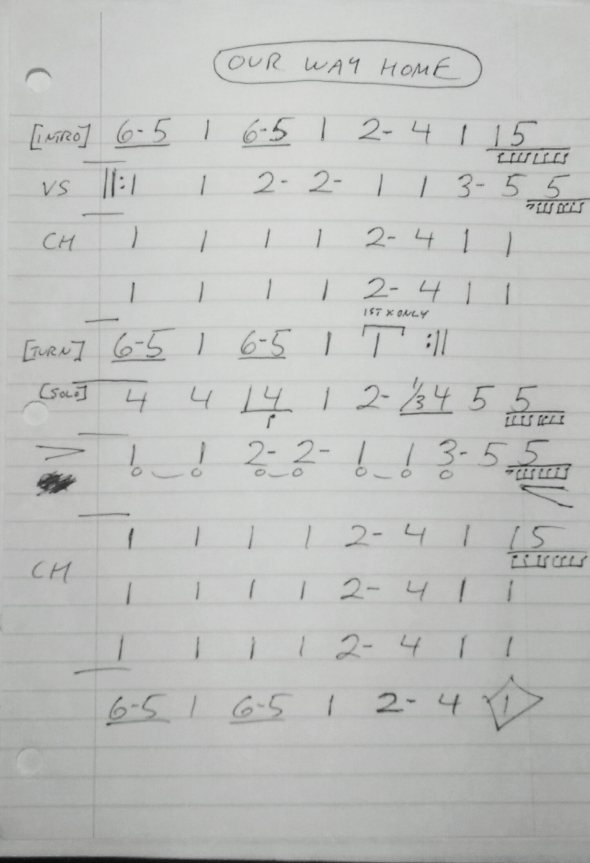 OUR WAY HOME
[INTRO] 6-5 1 6-5 1 2- 4 1 1 5
VS ‖: 1 1 2- 2- 1 1 3- 5 5
CH 1 1 1 1 2- 4 1 1
1 1 1 1 2- 4 1 1
1ST X ONLY
[TURN] 6-5 1 6-5 1 1 :‖
[SOLO] 4 4 1 4 1 2- 1/3 4 5 5
> 1 1 2- 2- 1 1 3- 5 5
CH 1 1 1 1 2- 4 1 1 5
1 1 1 1 2- 4 1 1
1 1 1 1 2- 4 1 1
6-5 1 6-5 1 2- 4 1